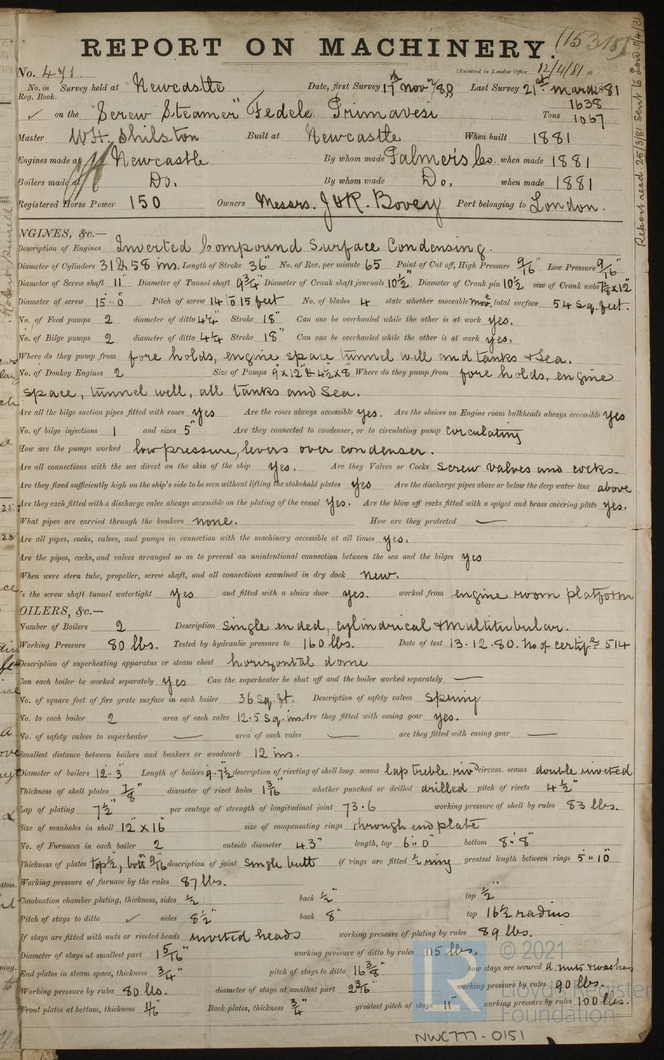 REPORT ON MACHINERY. (15318)
No. 471. (Received in London Office 12/4/81
No. in Reg. Book. Survey held at Newcastle Date, first Survey 17th Nov 80 Last Survey 21st March 1881
✓ on the Screw Steamer "Fedele Primavesi Tons 1638 1067
Master W.H. Shilston Built at Newcastle When built 1881
Engines made at Newcastle By whom made Palmer's Co. when made 1881
Boilers made at Do. By whom made Do. when made 1881
Registered Horse Power 150 Owners Messrs. J & R. Bovey Port belonging to London.
NGINES, &c.—
Description of Engines Inverted Compound Surface Condensing.
Diameter of Cylinders 31 & 58 ins. Length of Stroke 36" No. of Rev. per minute 65 Point of Cut off, High Pressure 9/16" Low Pressure 9/16"
Diameter of Screw shaft 11" Diameter of Tunnel shaft 9 3/4" Diameter of Crank shaft journals 10 1/2" Diameter of Crank pin 10 1/2 size of Crank webs 7 1/8 x 12"
Diameter of screw 15'-0" Pitch of screw 14 to 15 feet No. of blades 4 state whether moveable total surface 54 sq. feet.
No. of Feed pumps 2 diameter of ditto 4 1/4" Stroke 18" Can one be overhauled while the other is at work yes.
No. of Bilge pumps 2 diameter of ditto 4 1/4 Stroke 18" Can one be overhauled while the other is at work yes.
Where do they pump from fore holds, engine space tunnel well and tanks & Sea.
No. of Donkey Engines 2 Size of Pumps 9 x 12" & 4 1/2 x 8 Where do they pump from fore holds, engine
space, tunnel well, all tanks and Sea.
Are all the bilge suction pipes fitted with roses yes Are the roses always accessible yes. Are the sluices on Engine room bulkheads always accessible yes
No. of bilge injections 1 and sizes 5" Are they connected to condenser, or to circulating pump circulating
How are the pumps worked low pressure, levers over condenser.
Are all connections with the sea direct on the skin of the ship yes. Are they Valves or Cocks Screw valves and cocks.
Are they fixed sufficiently high on the ship's side to be seen without lifting the stokehold plates yes Are the discharge pipes above or below the deep water line above
Are they each fitted with a discharge valve always accessible on the plating of the vessel yes. Are the blow off cocks fitted with a spigot and brass covering plate yes.
What pipes are carried through the bunkers none. How are they protected —
Are all pipes, cocks, valves, and pumps in connection with the machinery accessible at all times yes.
Are the pipes, cocks, and valves arranged so as to prevent an unintentional connection between the sea and the bilges yes
When were stern tube, propeller, screw shaft, and all connections examined in dry dock new.
Is the screw shaft tunnel watertight yes and fitted with a sluice door yes. worked from engine room platform
OILERS, &c.—
Number of Boilers 2 Description Single ended, cylindrical & Multitubular.
Working Pressure 80 lbs. Tested by hydraulic pressure to 160 lbs. Date of test 13.12.80. No of certife 514
Description of superheating apparatus or steam chest horizontal dome
Can each boiler be worked separately yes Can the superheater be shut off and the boiler worked separately —
No. of square feet of fire grate surface in each boiler 36 sq. ft. Description of safety valves Spring
No. to each boiler 2 area of each valve 12.5 sq. ins. Are they fitted with easing gear yes.
No. of safety valves to superheater — area of each valve — are they fitted with easing gear —
Smallest distance between boilers and bunkers or woodwork 12 ins.
Diameter of boilers 12-3 Length of boilers 9-7 1/2 description of riveting of shell long. seams lap treble riv circum. seams double riveted
Thickness of shell plates 7/8" diameter of rivet holes 1 3/16" whether punched or drilled drilled pitch of rivets 4 1/2"
Lap of plating 7 1/2" per centage of strength of longitudinal joint 73.6 working pressure of shell by rules 83 lbs.
Size of manholes in shell 12" x 16" size of compensating rings through end plate
No. of Furnaces in each boiler 2 outside diameter 43" length, top 6'-0" bottom 8'-8"
Thickness of plates top 1/2, bott 9/16 description of joint single butt if rings are fitted 1/2 ring greatest length between rings 5'-10"
Working pressure of furnace by the rules 87 lbs.
Combustion chamber plating, thickness, sides 1/2" back 1/2" top 1/2"
Pitch of stays to ditto ✓ sides 8 1/2" back 8" top 16 1/2 radius
If stays are fitted with nuts or riveted heads riveted heads working pressure of plating by rules 89 lbs.
Diameter of stays at smallest part 1 5/16" working pressure of ditto by rules 115 lbs.
End plates in steam space, thickness 3/4" pitch of stays to ditto 16 3/8" how stays are secured d. nuts & washers
Working pressure by rules 80 lbs. diameter of stays at smallest part 2 3/16" working pressure by rules 90 lbs.
Front plates at bottom, thickness Back plates, thickness 3/4" greatest pitch of stays 11" working pressure by rules 100 lbs.
© 2021
Lloyd's Register
Foundation
NWC777-0151
Report recd 25/3/81 Sent to Lon 11/4/81